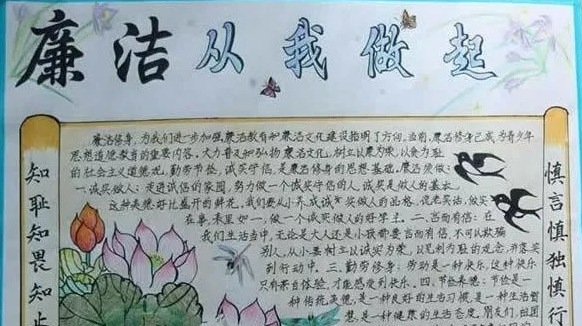 廉洁从我做起
知耻知畏知止
廉洁修身,为我们进一步加强廉洁教育和廉洁文化建设指明了方向。当前,廉洁修身已成为青少年
思想道德教育的重要内容。大力普及和弘扬廉洁文化,树立以廉为荣,以贪为耻
的社会主义道德龙,勤劳节俭,诚实守信,是廉洁修身的思想基础,廉洁须做:
一、诚实做人:走进诚信的家园,努力做一个诚实守信的人,诚实是做人的基本,
这种美德好比盛开的鲜花,我们要从小养成诚实做人的品格,说老实话,做实
在事,表里如一,做一个诚实做人的好学生。二、言而有信:在
我们生活当中,无论是大人还是小孩都要言而有信,不可以欺骗
别人,从小要树立以诚实为荣,以见利为耻的观念,并落实
到行动中。三、勤劳修身:劳动是一种快乐,这种快乐
只有亲自体验,才能感受到快乐。四、节俭美德:节俭是一
种传统美德,是一种良好的生活习惯,是一种生活智
慧,是一种健康的生活态度,朋友们,祖国
慎言慎独慎行